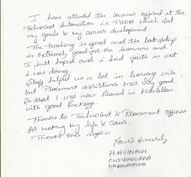 I have attended the course offered at the
Technocrat Automation i.e. " which set
my goals to my career development.
The teaching is good and the lab days
is extremely good for the learners and
I just hoped and I had faith in what
I was doing.
Staff helped us a lot in learning with
but Placement assistance was very good
so that I was now placed in
with good Package.
Thanks to Technocrat & Placement officers
for making my life & Career.
Thanks once again
Yours sincerely,
H. AVINASH
CHITRADURGA
KARNATAKA